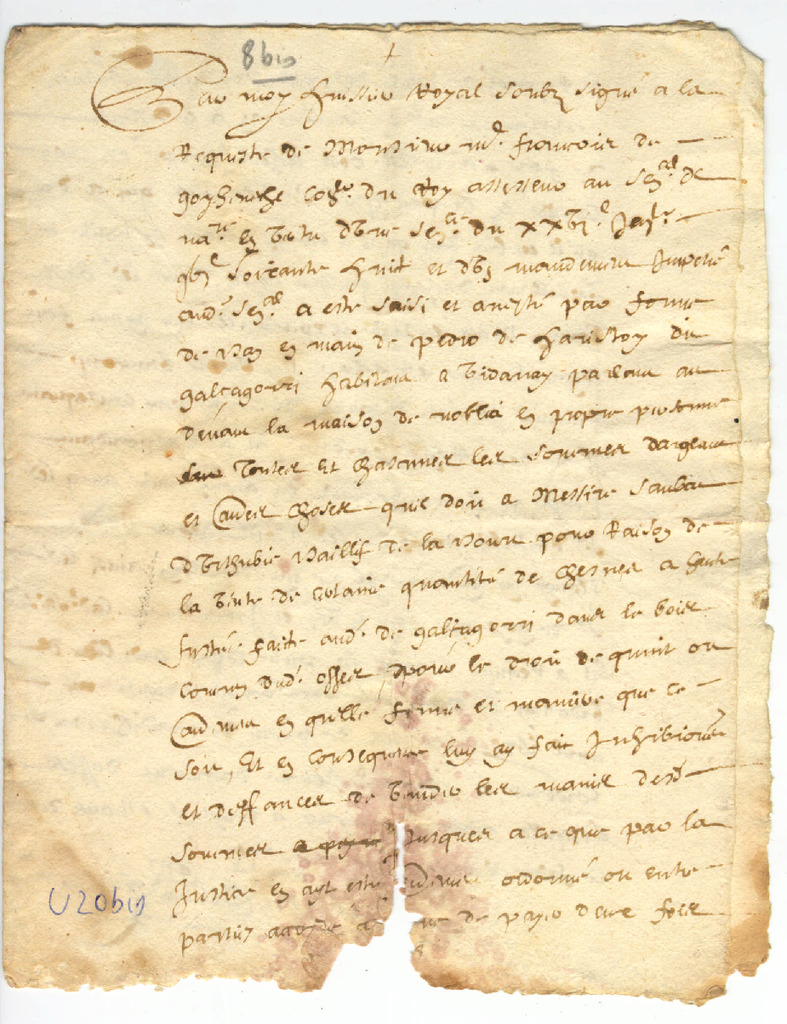 8 bis
Par moy huissier Royal soubz signé a la
Requeste de Monsieur Mr. francois de
goyheneche conser. du Roy assesseur au Senal. de
na.re en vertu dune sence. du xxvj.e
soixante huit et dun mandement Impetré
aud. Senal. a esté saisi et arresté par forme
de Ban en main de pedro de haristoy du
galcagorri habitant a bidarray parlant au
devant la maison de noblia en propre personne
toutes et chascunes les sommes dargent
et autres choses quil doit a Messire
durthubie Baillif de la Bourt pour Raison de
la vente de certaine quantité de chesnes a haute
fustée faite aud. de galcagorri dans les bois
commun dud. osses, pour le droit de quint ou
autrement en quelle forme et maniere que ce
soit, Et en consequence luy ay fait Inhibitions
et deffances de vuider les mains desd.
sommes Jusques a ce que par la
Justice en ayt esté autrement ordonné ou entre
parties accordé a de payer deux fois
U20bis